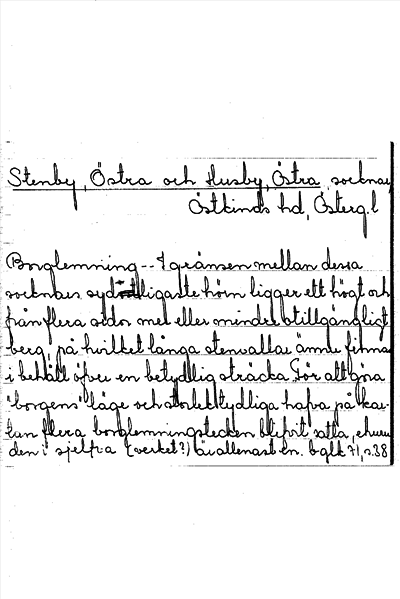 Stenby, Östra och Husby, Östra, socknar
Östkinds hd, Österg.l
Borglemning -- I gränsen mellan dessa
socknars sydostligaste hörn ligger ett högt och
från flera sidor mer eller mindre otillgängligt
berg, på hvilket långa stenvallar ännu finnas
i behåll öfver en betydlig sträcka. För att göra
"borgens" läge och storlek tydliga hafva på kar-
tan flera borglemningstecken blifvit satta, ehuru
den i sjelfva (verket?) är allenast en. bglk 71, s.38